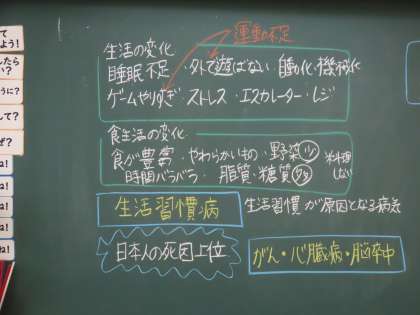 よう!
したら
い?
うに?
して?
ぜ?
ね!
ね!
ね!
ね!
ね!
運動不足
生活の変化
睡眠不足・外で遊ばない 自動化・機械化
ゲームやりすぎ・ストレス・エスカレーター・レジ
食生活の変化
食が豊富・やわらかいもの・野菜少 料理しない
時間バラバラ・脂質・糖質多
生活習慣病 生活習慣が原因となる病気
日本人の死因上位 がん・心臓病・脳卒中